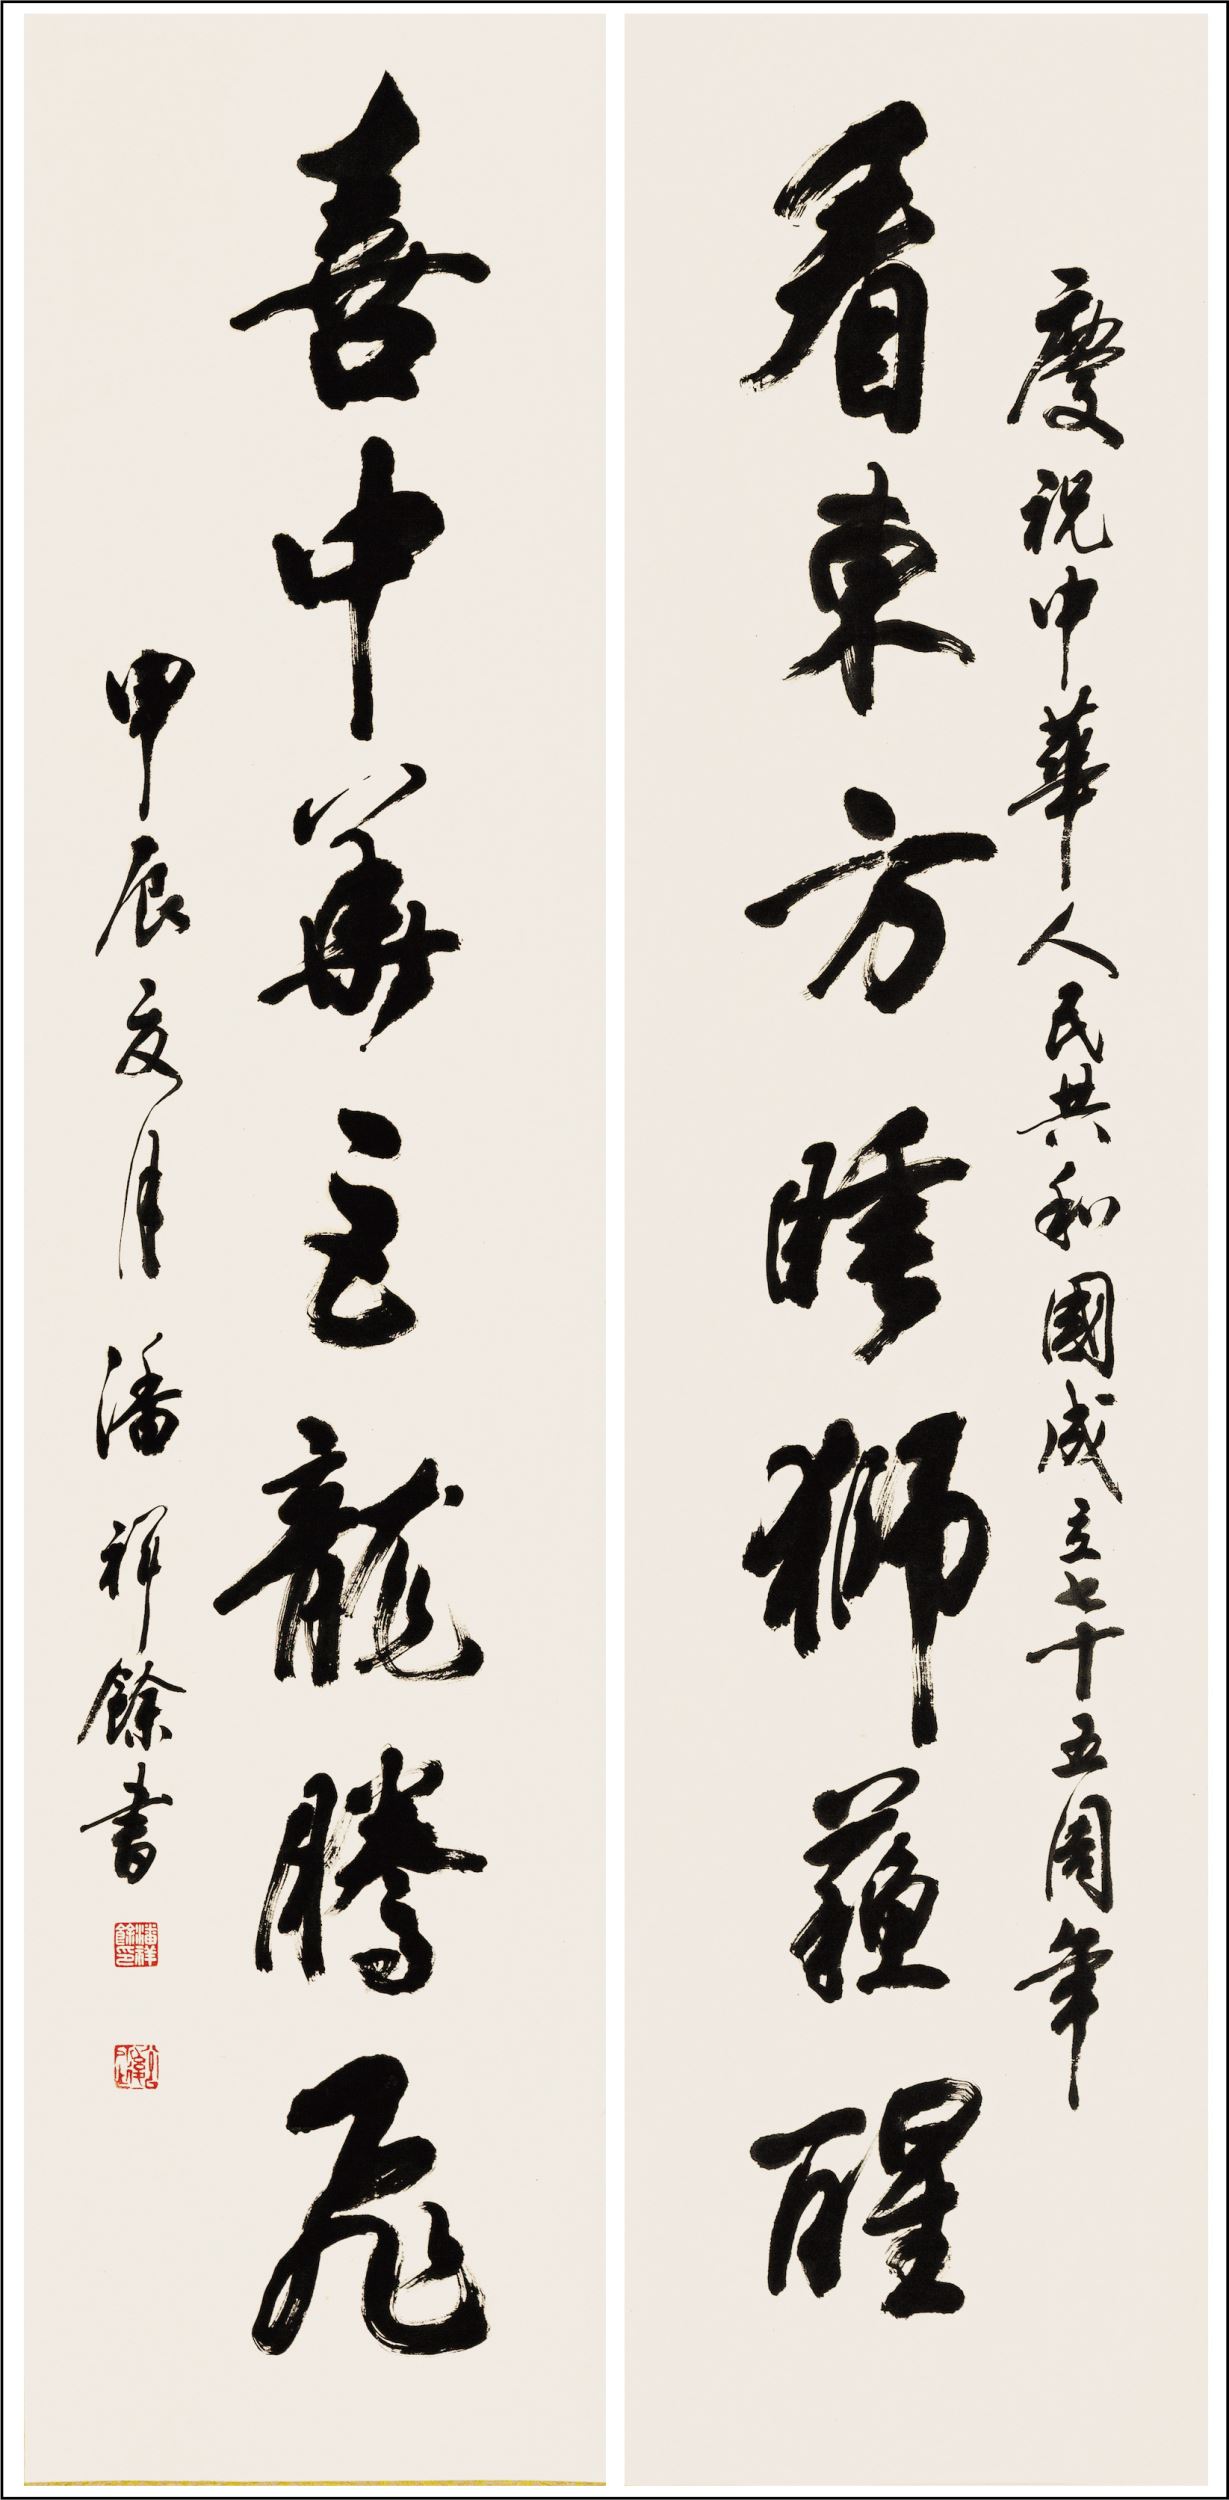 慶祝中華人民共和國成立七十五周年
看東方睡獅蘇醒
喜中華巨龍騰飛
甲辰夏月潘祥餘書
潘祥餘印